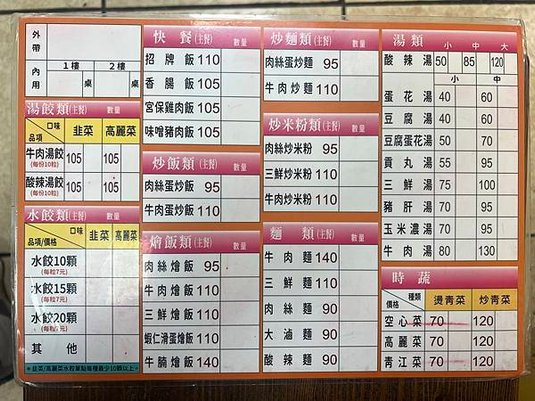 外帶
內用
1樓 2樓
桌 桌
湯餃類(主餐) 數量
口味 品項 韭菜 高麗菜
牛肉湯餃 (每份10粒) 105 105
酸辣湯餃 (每份10粒) 105 105
水餃類(主餐) 數量
口味 品項/價格 韭菜 高麗菜
水餃10顆 (每粒7元)
水餃15顆 (每粒7元)
水餃20顆 (每粒7元)
其他
*韭菜/高麗菜水餃單點每種最少10顆以上。
快餐(主餐) 數量
招牌飯 110
香腸飯 105
宮保雞肉飯 105
味噌豬肉飯 105
炒飯類(主餐) 數量
肉絲蛋炒飯 95
牛肉蛋炒飯 110
燴飯類(主餐) 數量
肉絲燴飯 95
牛肉燴飯 110
三鮮燴飯 110
蝦仁滑蛋燴飯 110
牛腩燴飯 140
炒麵類(主餐) 數量
肉絲蛋炒麵 95
牛肉炒麵 110
炒米粉類(主餐) 數量
肉絲炒米粉 95
三鮮炒米粉 110
牛肉炒米粉 110
麵類(主餐) 數量
牛肉麵 140
三鮮麵 110
肉絲麵 90
大滷麵 90
酸辣麵 90
湯類 小 中 大
酸辣湯 50 85 120
小 中
蛋花湯 40 60
豆腐湯 40 60
豆腐蛋花湯 50 70
貢丸湯 55 95
三鮮湯 75 100
豬肝湯 70 95
玉米濃湯 70 95
牛肉湯 80 130
時蔬
種類 價格 燙青菜 炒青菜
空心菜 70 120
高麗菜 70 120
青江菜 70 120